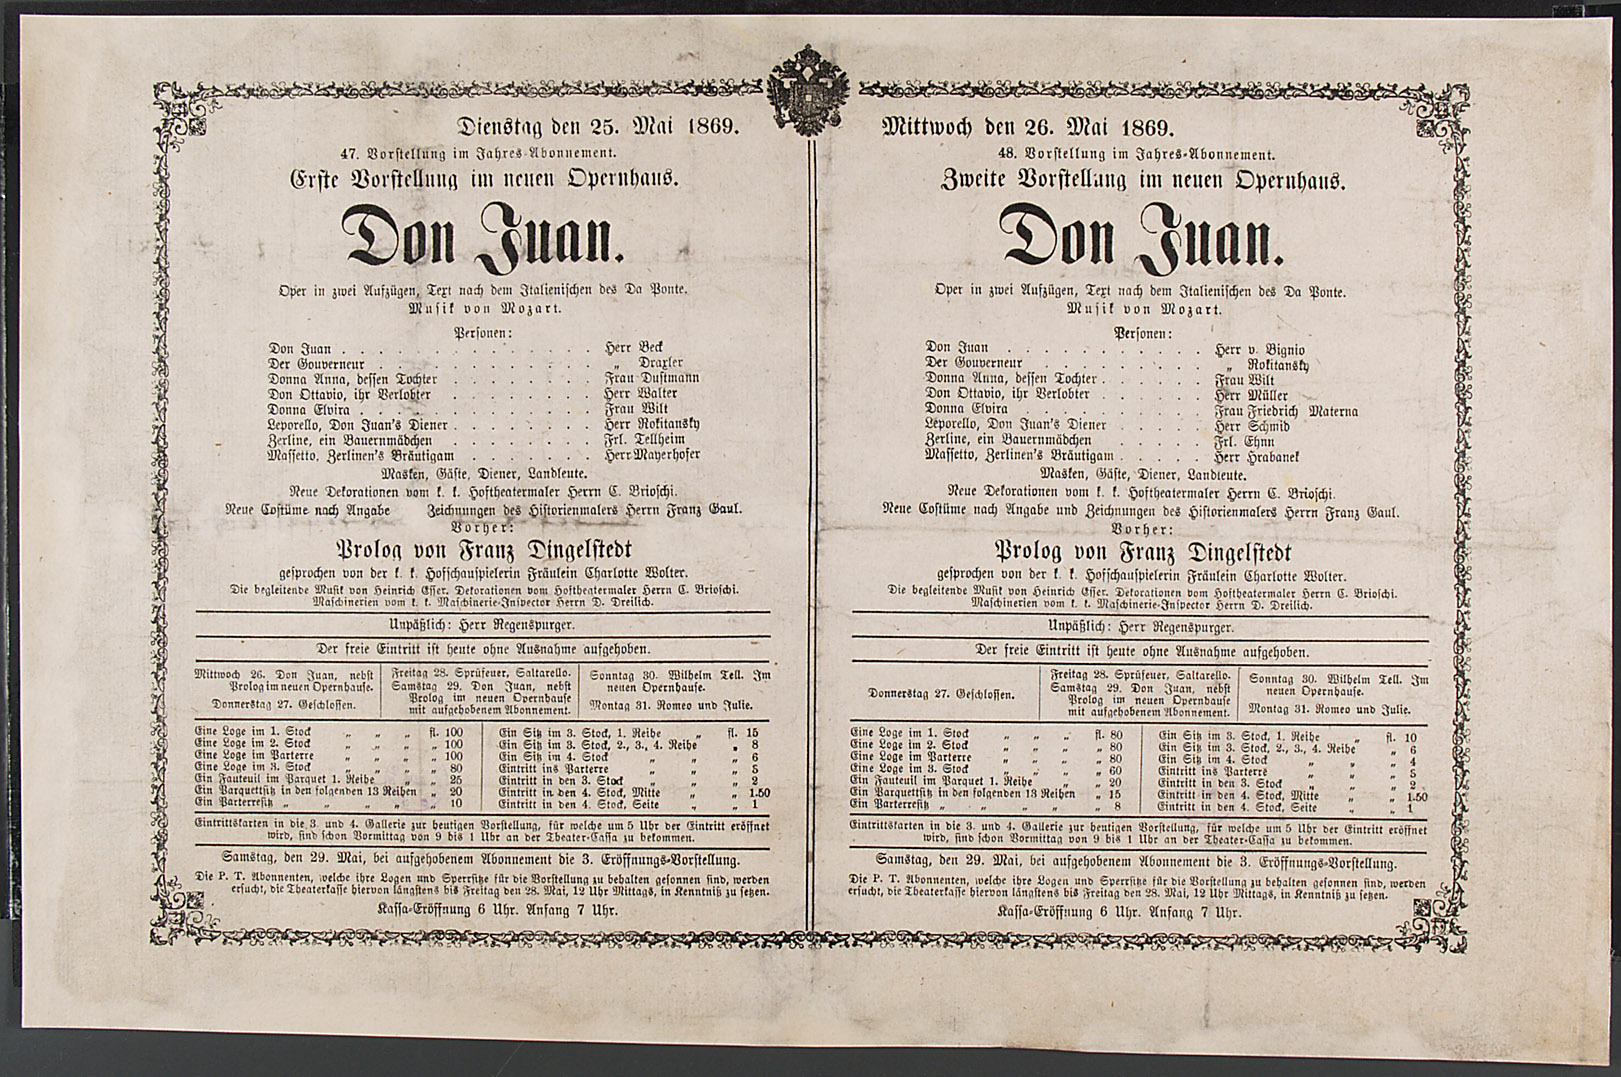 Dienstag den 25. Mai 1869.
47. Vorstellung im Jahres-Abonnement.
Erste Vorstellung im neuen Opernhaus.
Don Juan.
Oper in zwei Aufzügen, Text nach dem Italienischen des Da Ponte.
Musik von Mozart.
Personen:
Don Juan . . . . . . . . . . . . . . Herr Beck
Der Gouverneur . . . . . . . . . . . . „ Draxler
Donna Anna, dessen Tochter . . . . . . . . Frau Dustmann
Don Ottavio, ihr Verlobter . . . . . . . . Herr Walter
Donna Elvira . . . . . . . . . . . . . Frau Wilt
Leporello, Don Juan's Diener . . . . . . . . Herr Rokitansky
Zerline, ein Bauernmädchen . . . . . . . . Frl. Tellheim
Massetto, Zerlinen's Bräutigam . . . . . . . Herr Mayerhofer
Masken, Gäste, Diener, Landleute.
Neue Dekorationen vom k. k. Hoftheatermaler Herrn C. Brioschi.
Neue Costüme nach Angabe Zeichnungen des Historienmalers Herrn Franz Gaul.
Vorher:
Prolog von Franz Dingelstedt
gesprochen von der k. k. Hofschauspielerin Fräulein Charlotte Wolter.
Die begleitende Musik von Heinrich Esser. Dekorationen vom Hoftheatermaler Herrn C. Brioschi.
Maschinerien vom k. k. Maschinerie-Inspector Herrn D. Dreilich.
Unpäßlich: Herr Regenspurger.
Der freie Eintritt ist heute ohne Ausnahme aufgehoben.
Mittwoch 26. Don Juan, nebst
Prolog im neuen Opernhause.
Donnerstag 27. Geschlossen.
Freitag 28. Sprühfeuer, Saltarello.
Samstag 29. Don Juan, nebst
Prolog im neuen Opernhause
mit aufgehobenem Abonnement.
Sonntag 30. Wilhelm Tell. Im
neuen Opernhause.
Montag 31. Romeo und Julie.
Eine Loge im 1. Stock „ „ „ fl. 100
Eine Loge im 2. Stock „ „ „ „ 100
Eine Loge im Parterre „ „ „ „ 100
Eine Loge im 3. Stock „ „ „ „ 80
Ein Fauteuil im Parquet 1. Reihe „ „ 25
Ein Parquettsitz in den folgenden 13 Reihen „ 20
Ein Parterresitz „ „ „ „ „ 10
Ein Sitz im 3. Stock, 1. Reihe „ fl. 15
Ein Sitz im 3. Stock, 2., 3., 4. Reihe „ 8
Ein Sitz im 4. Stock „ „ „ 6
Eintritt ins Parterre „ „ „ 5
Eintritt in den 3. Stock „ „ 2
Eintritt in den 4. Stock, Mitte „ „ 1.50
Eintritt in den 4. Stock, Seite „ „ 1
Eintrittskarten in die 3. und 4. Gallerie zur heutigen Vorstellung, für welche um 5 Uhr der Eintritt eröffnet
wird, sind schon Vormittag von 9 bis 1 Uhr an der Theater-Cassa zu bekommen.
Samstag, den 29. Mai, bei aufgehobenem Abonnement die 3. Eröffnungs-Vorstellung.
Die P. T. Abonnenten, welche ihre Logen und Sperrsitze für die Vorstellung zu behalten gesonnen sind, werden
ersucht, die Theaterkasse hiervon längstens bis Freitag den 28. Mai, 12 Uhr Mittags, in Kenntniß zu setzen.
Kassa-Eröffnung 6 Uhr. Anfang 7 Uhr.
Mittwoch den 26. Mai 1869.
48. Vorstellung im Jahres-Abonnement.
Zweite Vorstellung im neuen Opernhaus.
Don Juan.
Oper in zwei Aufzügen, Text nach dem Italienischen des Da Ponte.
Musik von Mozart.
Personen:
Don Juan . . . . . . . . . . . Herr v. Bignio
Der Gouverneur . . . . . . . . . „ Rokitansky
Donna Anna, dessen Tochter . . . . . . Frau Wilt
Don Ottavio, ihr Verlobter . . . . . . Herr Müller
Donna Elvira . . . . . . . . . . Frau Friedrich Materna
Leporello, Don Juan's Diener . . . . . Herr Schmid
Zerline, ein Bauernmädchen . . . . . Frl. Ehnn
Massetto, Zerlinen's Bräutigam . . . . . Herr Hrabanek
Masken, Gäste, Diener, Landleute.
Neue Dekorationen vom k. k. Hoftheatermaler Herrn C. Brioschi.
Neue Costüme nach Angabe und Zeichnungen des Historienmalers Herrn Franz Gaul.
Vorher:
Prolog von Franz Dingelstedt
gesprochen von der k. k. Hofschauspielerin Fräulein Charlotte Wolter.
Die begleitende Musik von Heinrich Esser. Dekorationen vom Hoftheatermaler Herrn C. Brioschi.
Maschinerien vom k. k. Maschinerie-Inspector Herrn D. Dreilich.
Unpäßlich: Herr Regenspurger.
Der freie Eintritt ist heute ohne Ausnahme aufgehoben.
Donnerstag 27. Geschlossen.
Freitag 28. Sprühfeuer, Saltarello.
Samstag 29. Don Juan, nebst
Prolog im neuen Opernhause
mit aufgehobenem Abonnement.
Sonntag 30. Wilhelm Tell. Im
neuen Opernhause.
Montag 31. Romeo und Julie.
Eine Loge im 1. Stock „ „ „ fl. 80
Eine Loge im 2. Stock „ „ „ „ 80
Eine Loge im Parterre „ „ „ „ 80
Eine Loge im 3. Stock „ „ „ „ 60
Ein Fauteuil im Parquet 1. Reihe „ „ 20
Ein Parquettsitz in den folgenden 13 Reihen „ 15
Ein Parterresitz „ „ „ „ „ 8
Ein Sitz im 3. Stock, 1. Reihe „ fl. 10
Ein Sitz im 3. Stock, 2., 3., 4. Reihe „ 6
Ein Sitz im 4. Stock „ „ „ 4
Eintritt ins Parterre „ „ „ 5
Eintritt in den 3. Stock „ „ 2
Eintritt in den 4. Stock, Mitte „ „ 1.50
Eintritt in den 4. Stock, Seite „ „ 1
Eintrittskarten in die 3. und 4. Gallerie zur heutigen Vorstellung, für welche um 5 Uhr der Eintritt eröffnet
wird, sind schon Vormittag von 9 bis 1 Uhr an der Theater-Cassa zu bekommen.
Samstag, den 29. Mai, bei aufgehobenem Abonnement die 3. Eröffnungs-Vorstellung.
Die P. T. Abonnenten, welche ihre Logen und Sperrsitze für die Vorstellung zu behalten gesonnen sind, werden
ersucht, die Theaterkasse hiervon längstens bis Freitag den 28. Mai, 12 Uhr Mittags, in Kenntniß zu setzen.
Kassa-Eröffnung 6 Uhr. Anfang 7 Uhr.